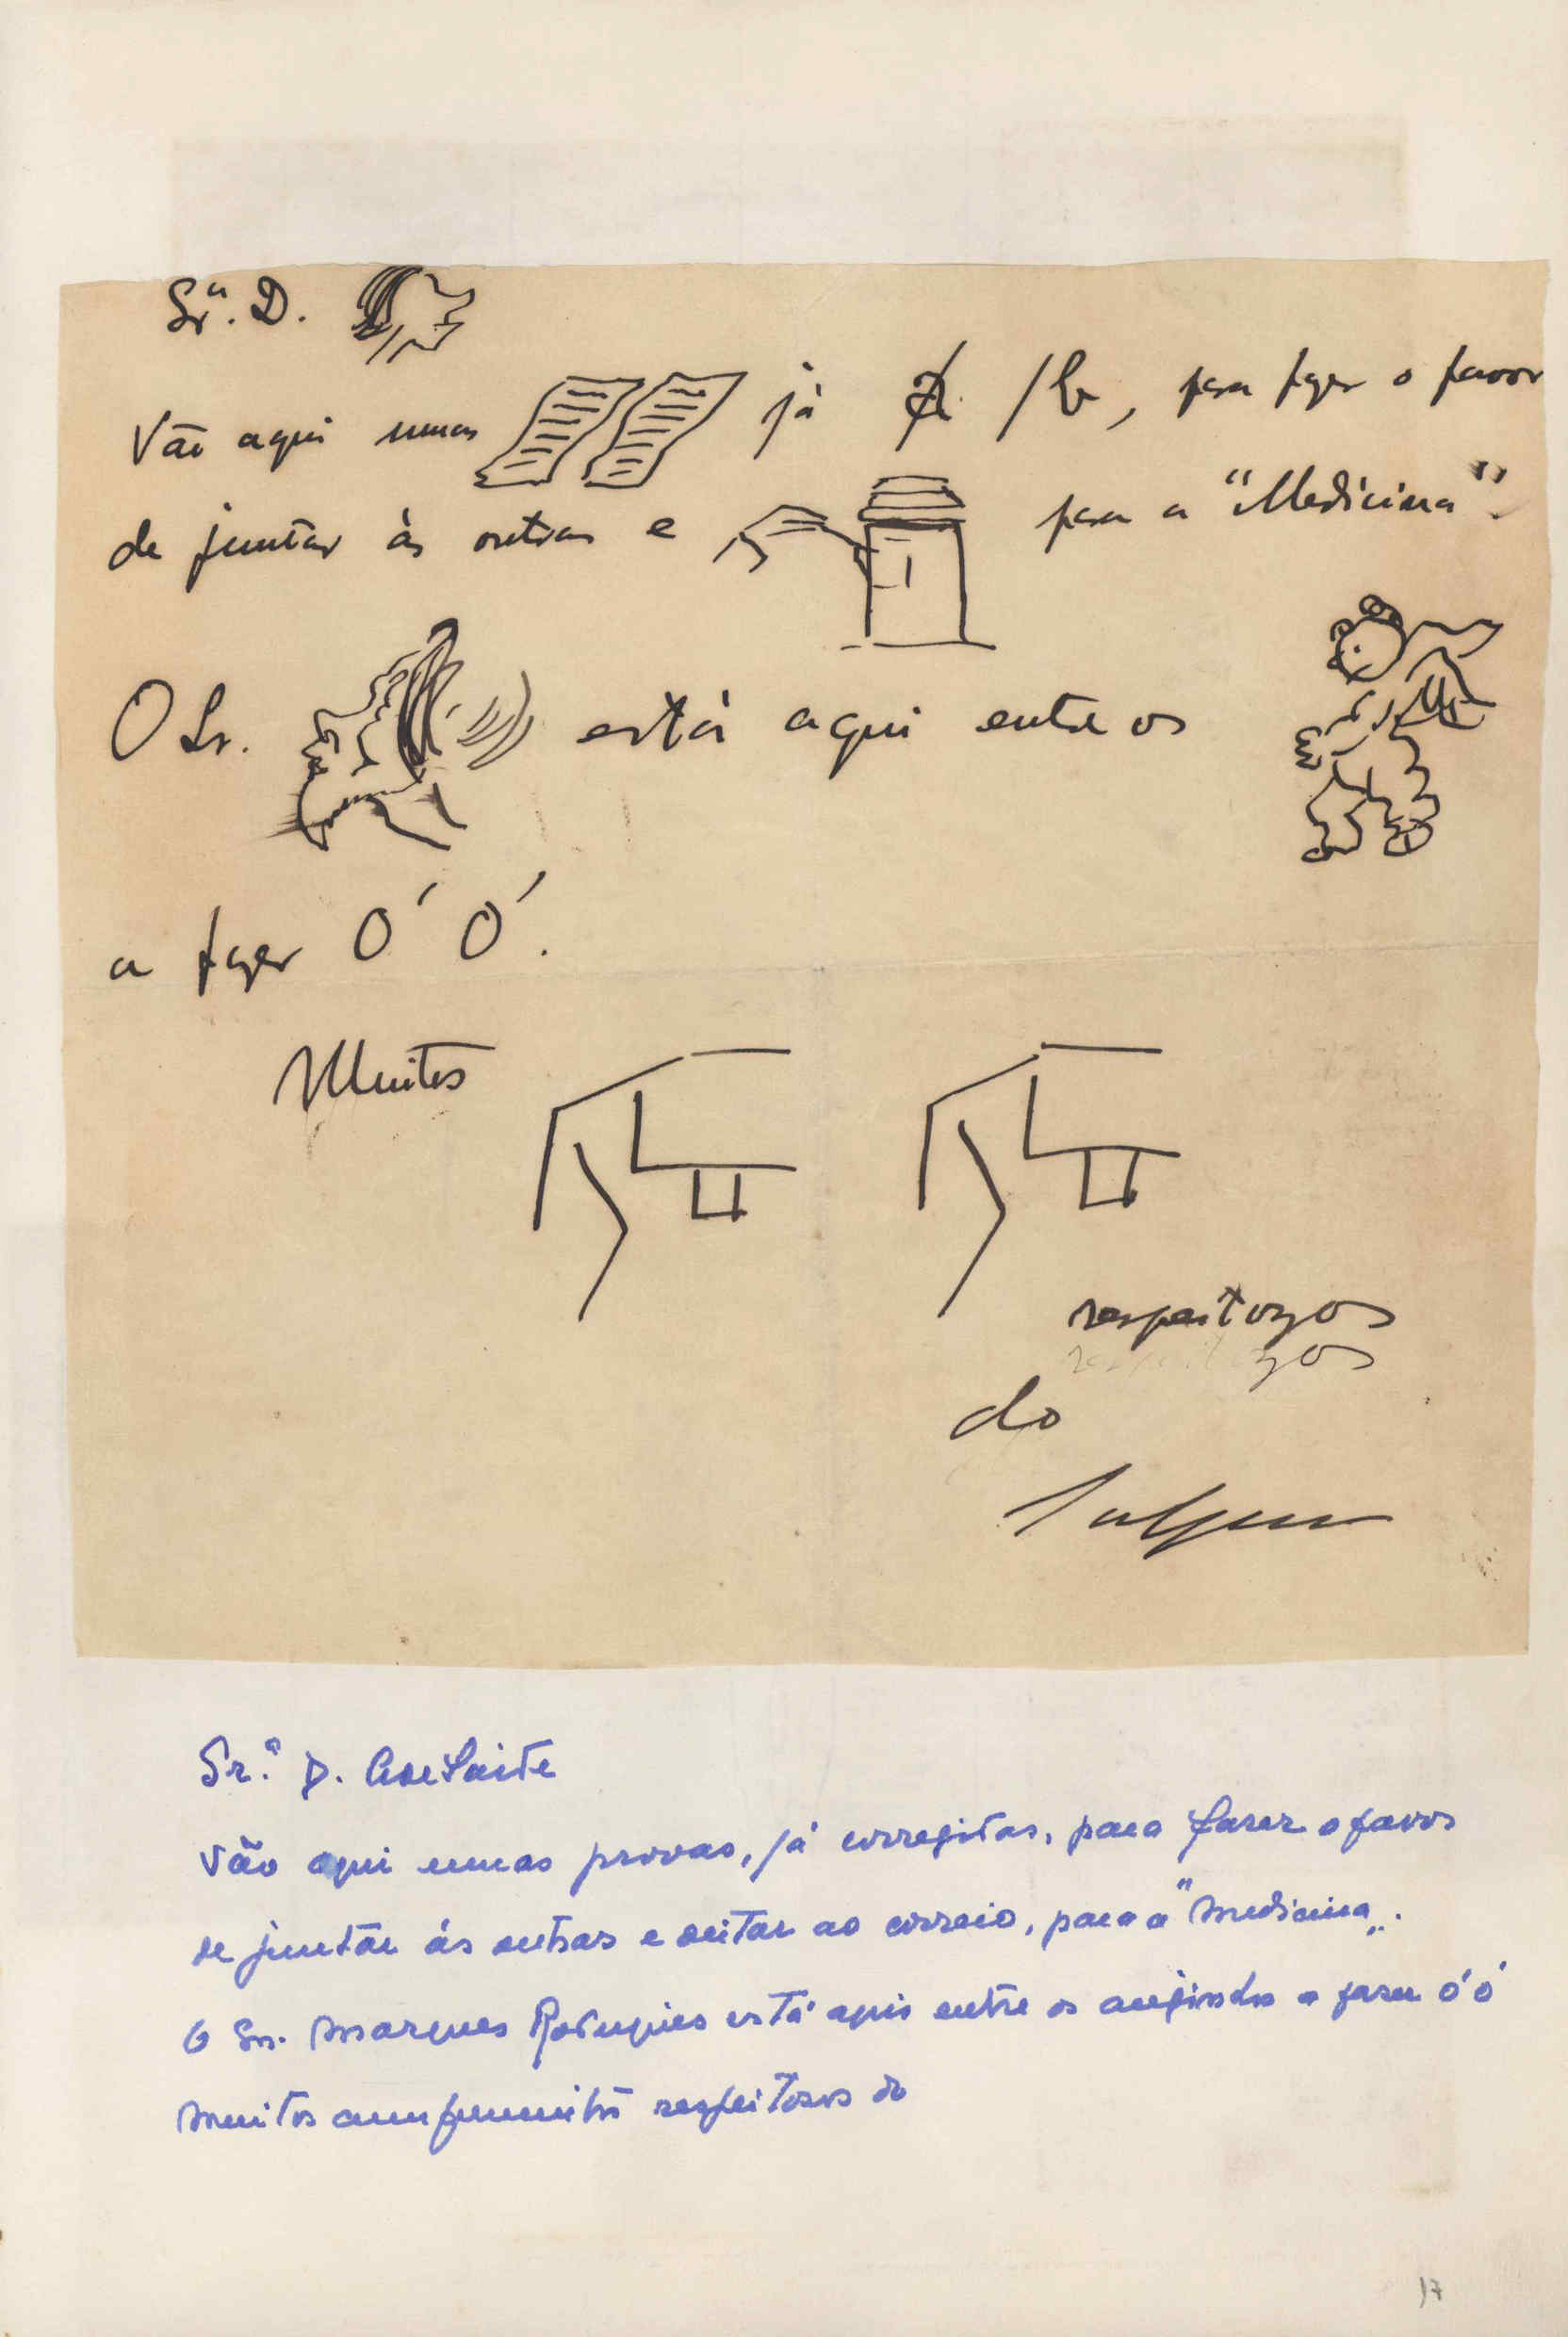 Srª. D.
Vão aqui umas já a /b, para fazer o favor
de juntar às outras e para a "Medicina".
O Sr. está aqui entre os
a fazer Ó Ó.
Muitos
respeitozos
do
Sr.ª D. Adelaide
Vão aqui umas provas, já corregidas, para fazer o favor
de juntar ás outras e deitar ao correio, para a "Medicina".
O Snr. Marques Rodrigues está aqui entre os anjinhos a fazer ó ó
Muitos cumprimentos respeitosos do
17